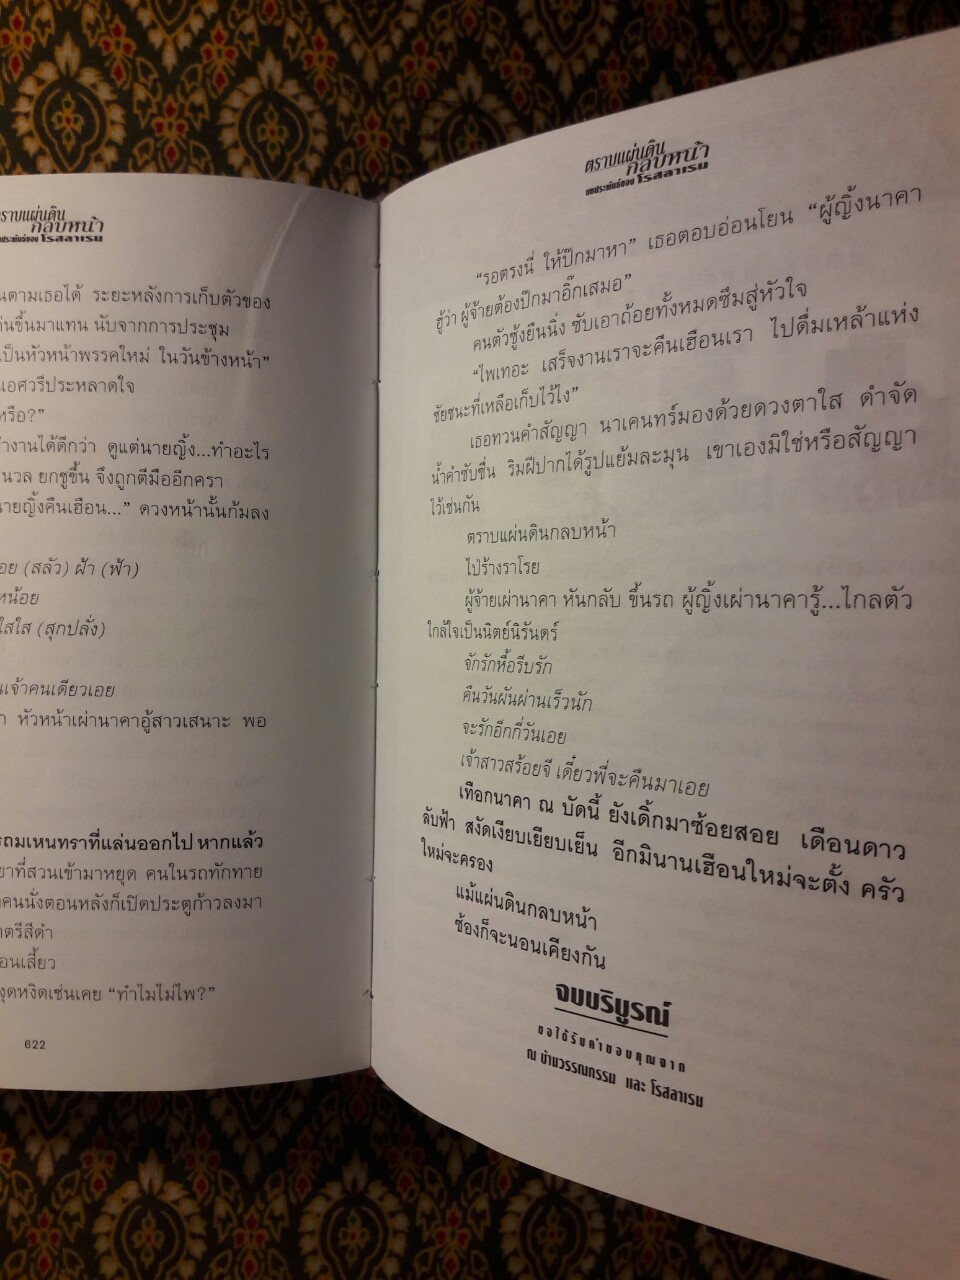 ตราบแผ่นดิน
กลบหน้า
โรสลาเรน
นตามเธอได้ ระยะหลังการเก็บตัวของ
ขึ้นมาแทน นับจากการประชุม
เป็นหัวหน้าพรรคใหม่ ในวันข้างหน้า”
เอศวรีประหลาดใจ
หรือ?”
งานได้ดีกว่า ดูแต่นายญิ้ง...ทำอะไร
นวล ยกชูขึ้น จึงถูกตีมืออีกครา
นายญิ้งคืนเฮือน...” ดวงหน้านั้นก้มลง
อย (สลัว) ฝ้า (ฟ้า)
หน้อย
ใสใส (สุกปลั่ง)
เจ้าคนเดียวเอย
หัวหน้าเผ่านาคาอู้สาวเสนาะ พอ
รถมเหนทราที่แล่นออกไป หากแล้ว
ยาที่สวนเข้ามาหยุด คนในรถทักทาย
คนนั่งตอนหลังก็เปิดประตูก้าวลงมา
ตรีสีดำ
อนเสี้ยว
งุดหงิดเช่นเคย “ทำไมไม่ไพ?”
622
ตราบแผ่นดิน
กลบหน้า
บทประพันธ์ของ โรสลาเรน
“รอตรงนี่ ให้ป๊กมาหา” เธอตอบอ่อนโยน “ผู้ญิ้งนาคา
ฮู้ว่า ผู้จ้ายต้องป๊กมาอิ๊กเสมอ”
คนตัวซู้งยืนนิ่ง ซับเอาถ้อยทั้งหมดซึมสู่หัวใจ
“ไพเทอะ เสร็จงานเราจะคืนเฮือนเรา ไปดื่มเหล้าแห่ง
ชัยชนะที่เหลือเก็บไว้ไง”
เธอทวนคำสัญญา นาเคนทร์มองด้วยดวงตาใส ดำจัด
น้ำคำซับชื่น ริมฝีปากได้รูปแย้มละมุน เขาเองมิใช่หรือสัญญา
ไว้เช่นกัน
ตราบแผ่นดินกลบหน้า
ไป่ร้างราโรย
ผู้จ้ายเผ่านาคา หันกลับ ขึ้นรถ ผู้ญิ้งเผ่านาคารู้...ไกลตัว
ใกล้ใจเป็นนิตย์นิรันดร์
จักรักหื้อรีบรัก
คืนวันผันผ่านเร็วนัก
จะรักอีกกี่วันเอย
เจ้าสาวสร้อยจี เดี๋ยวพี่จะคืนมาเอย
เทือกนาคา ณ บัดนี้ ยังเดิ้กมาซ้อยสอย เดือนดาว
ลับฟ้า สงัดเงียบเยียบเย็น อีกมินานเฮือนใหม่จะตั้ง ครัว
ใหม่จะครอง
แม้แผ่นดินกลบหน้า
ซ้องก็จะนอนเคียงกัน
จบบริบูรณ์
ขอได้รับคำขอบคุณจาก
ณ บ้านวรรณกรรม และ โรสลาเรน